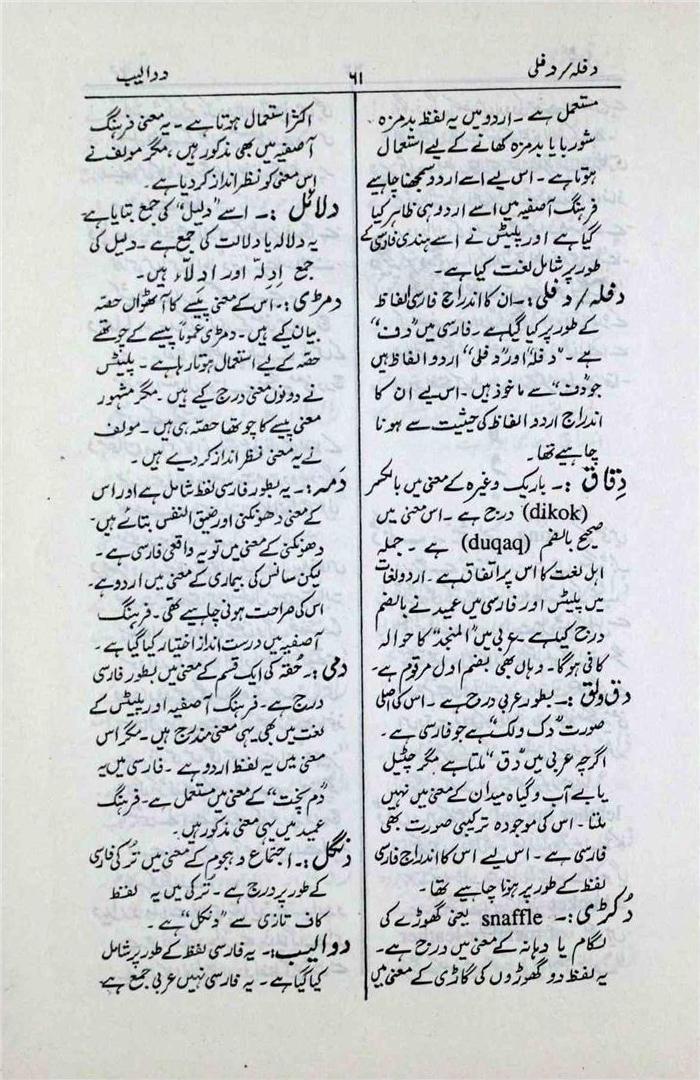 دفلہ/دفلی
۶۱
دوالیب
مستعمل ہے۔ اردو میں یہ لفظ بدمزہ
شوربا یا بدمزہ کھانے کے لیے استعمال
ہوتا ہے۔ اس لیے اسے اردو سمجھنا چاہیے
فرہنگ آصفیہ میں اسے اردو ہی ظاہر کیا
گیا ہے اور پلیٹس نے اسے ہندی فارسی کے
طور پر شامل لغت کیا ہے۔
دفلہ/دفلی:۔ ان کا اندراج فارسی الفاظ
کے طور پر کیا گیا ہے۔ فارسی میں "دف"
ہے۔ "دفلہ" اور "دفلی" اردو الفاظ ہیں
جو "دف" سے ماخوذ ہیں۔ اس لیے ان کا
اندراج اردو الفاظ کی حیثیت سے ہونا
چاہیے تھا۔
دِقاق:۔ باریک وغیرہ کے معنی میں بالکسر
(dikok) درج ہے۔ اس معنی میں
صحیح بالضم (duqaq) ہے۔ جملہ
اہل لغت کا اس پر اتفاق ہے۔ اردو لغات
میں پلیٹس اور فارسی میں عمید نے بالضم
درج کیا ہے۔ عربی میں "المنجد" کا حوالہ
کافی ہوگا۔ وہاں بھی بضم اول مرقوم ہے۔
دق ولق:۔ بطور عربی درج ہے۔ اس کی اصلی
صورت "دک ولک" ہے جو فارسی ہے۔
اگرچہ عربی میں "دق" ملتا ہے مگر چٹیل
یا بے آب و گیاہ میدان کے معنی میں نہیں
ملتا۔ اس کی موجودہ ترکیبی صورت بھی
فارسی ہے۔ اس لیے اس کا اندراج فارسی
لفظ کے طور پر ہونا چاہیے تھا۔
دُکڑی:۔ snaffle یعنی گھوڑے کی
لگام یا دہانہ کے معنی میں درج ہے۔
یہ لفظ دو گھوڑوں کی گاڑی کے معنی میں
اکثر استعمال ہوتا ہے۔ یہ معنی فرہنگ
آصفیہ میں بھی مذکور ہیں، مگر مولف نے
اس معنی کو نظر انداز کر دیا ہے۔
دلائل:۔ اسے "دلیل" کی جمع بتایا ہے
یہ دلالہ یا دلالت کی جمع ہے۔ دلیل کی
جمع اِدِلّہ اور ادِلاّء ہیں۔
دمڑی:۔ اس کے معنی پیسے کا آٹھواں حصہ
بیان کیے ہیں۔ دمڑی عموماً پیسے کے چوتھے
حصہ کے لیے استعمال ہوتا رہا ہے۔ پلیٹس
نے دونوں معنی درج کیے ہیں۔ مگر مشہور
معنی پیسے کا چوتھا حصہ ہی ہیں۔ مولف
نے یہ معنی نظر انداز کر دیے ہیں۔
دَمہ:۔ یہ بطور فارسی لفظ شامل ہے اور اس
کے معنی دھونکنی اور ضیق النفس بتائے ہیں۔
دھونکنی کے معنی میں تو یہ واقعی فارسی ہے۔
لیکن سانس کی بیماری کے معنی میں اردو ہے۔
اس کی صراحت ہونی چاہیے تھی۔ فرہنگ
آصفیہ میں درست انداز اختیار کیا گیا ہے۔
دمی:۔ حُقہ کی ایک قسم کے معنی میں بطور فارسی
درج ہے۔ فرہنگ آصفیہ اور پلیٹس کے
لغت میں بھی یہی معنی مندرج ہیں۔ مگر اس
معنی میں یہ لفظ اردو ہے۔ فارسی میں یہ
"دُم پخت" کے معنی میں مستعمل ہے۔ فرہنگ
عمید میں یہی معنی مذکور ہیں۔
دنگل:۔ اجتماع و ہجوم کے معنی میں ترکی فارسی
کے طور پر درج ہے۔ تُرکی میں یہ لفظ
کاف تازی سے "دنکل" ہے۔
دوالیب:۔ یہ فارسی لفظ کے طور پر شامل
کیا گیا ہے۔ یہ فارسی نہیں عربی جمع ہے